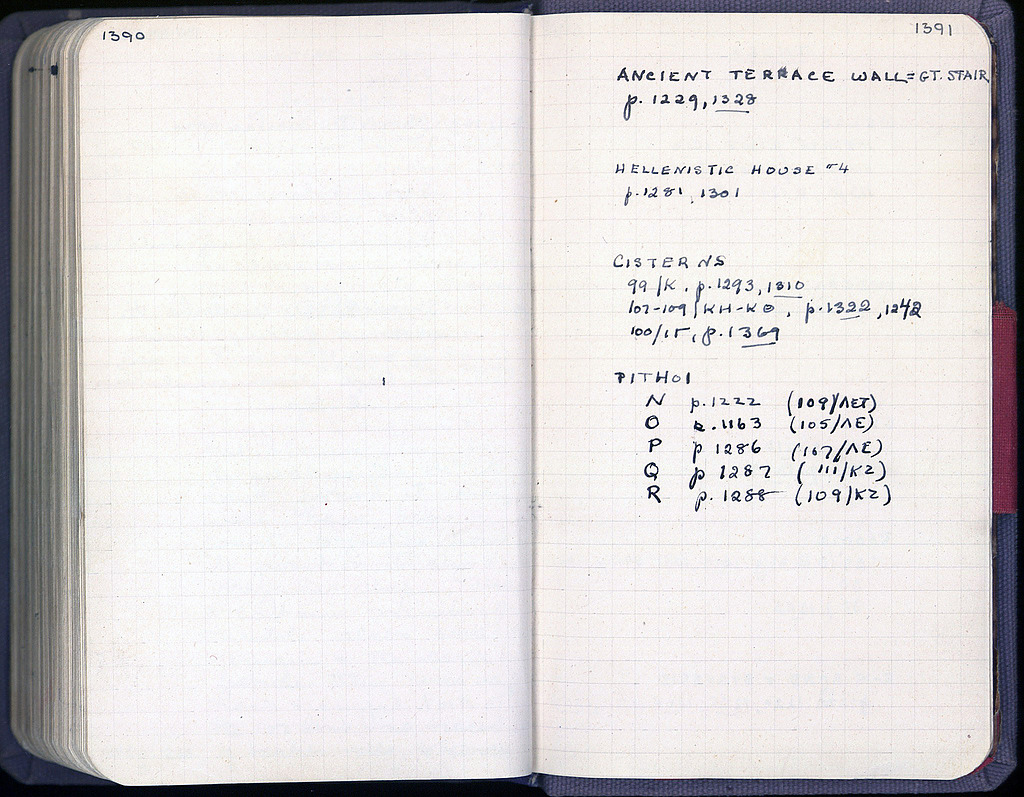 1390
1391
ANCIENT TERRACE WALL = GT. STAIR
p. 1229, 1328
HELLENISTIC HOUSE #4
p. 1281, 1301
CISTERNS
99/K, p. 1293, 1310
107-109/ΚΗ-ΚΘ, p. 1322, 1242
100/ΙΓ, p. 1369
PITHOI
N p. 1222 (109/ΛΣΤ)
O p. 1163 (105/ΛΕ)
P p 1286 (107/ΛΕ)
Q p 1287 (111/ΚΖ)
R p. 1288 (109/ΚΖ)